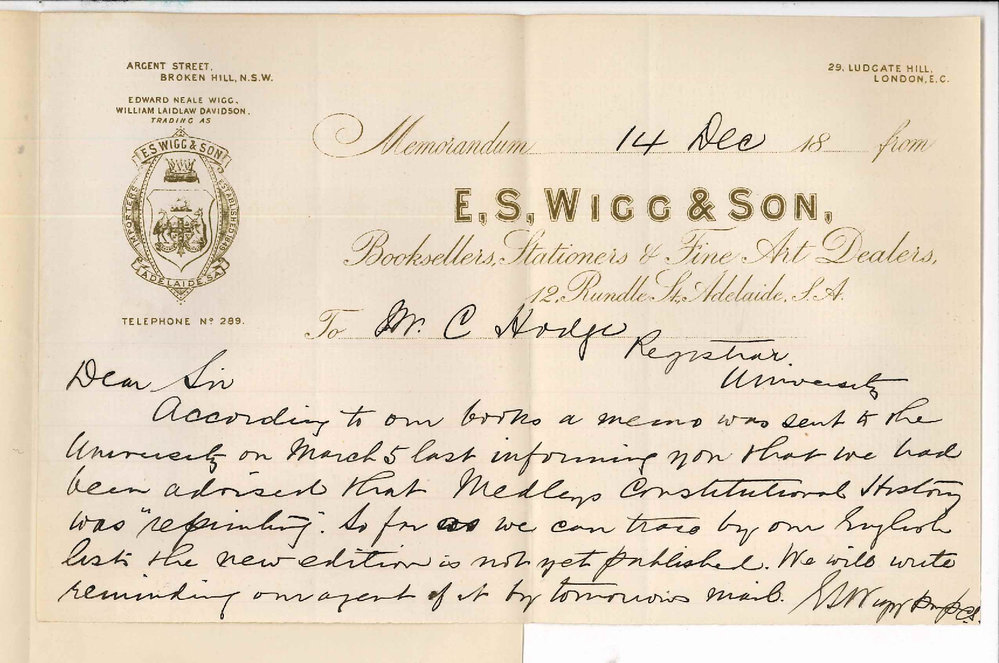 ARGENT STREET,
BROKEN HILL, N.S.W.
29, LUDGATE HILL,
LONDON, E.C.
EDWARD NEALE WIGG,
WILLIAM LAIDLAW DAVIDSON,
TRADING AS
E S WIGG & SON
IMPORTERS
ADELAIDE S.A.
TELEPHONE Nº 289.
Memorandum 14 Dec 18 from
E, S, WIGG & SON,
Booksellers, Stationers & Fine Art Dealers,
12, Rundle St, Adelaide, S.A.
To Mr. C Hodge
Registrar
University
Dear Sir
According to our books a memo was sent to the
University on March 5 last informing you that we had
been advised that Medleys Constitutional History
was "reprinting". So far as we can trace by our English
lists the new edition is not yet published. We will write
reminding our agent of it by tomorrows mail. ES Wigg